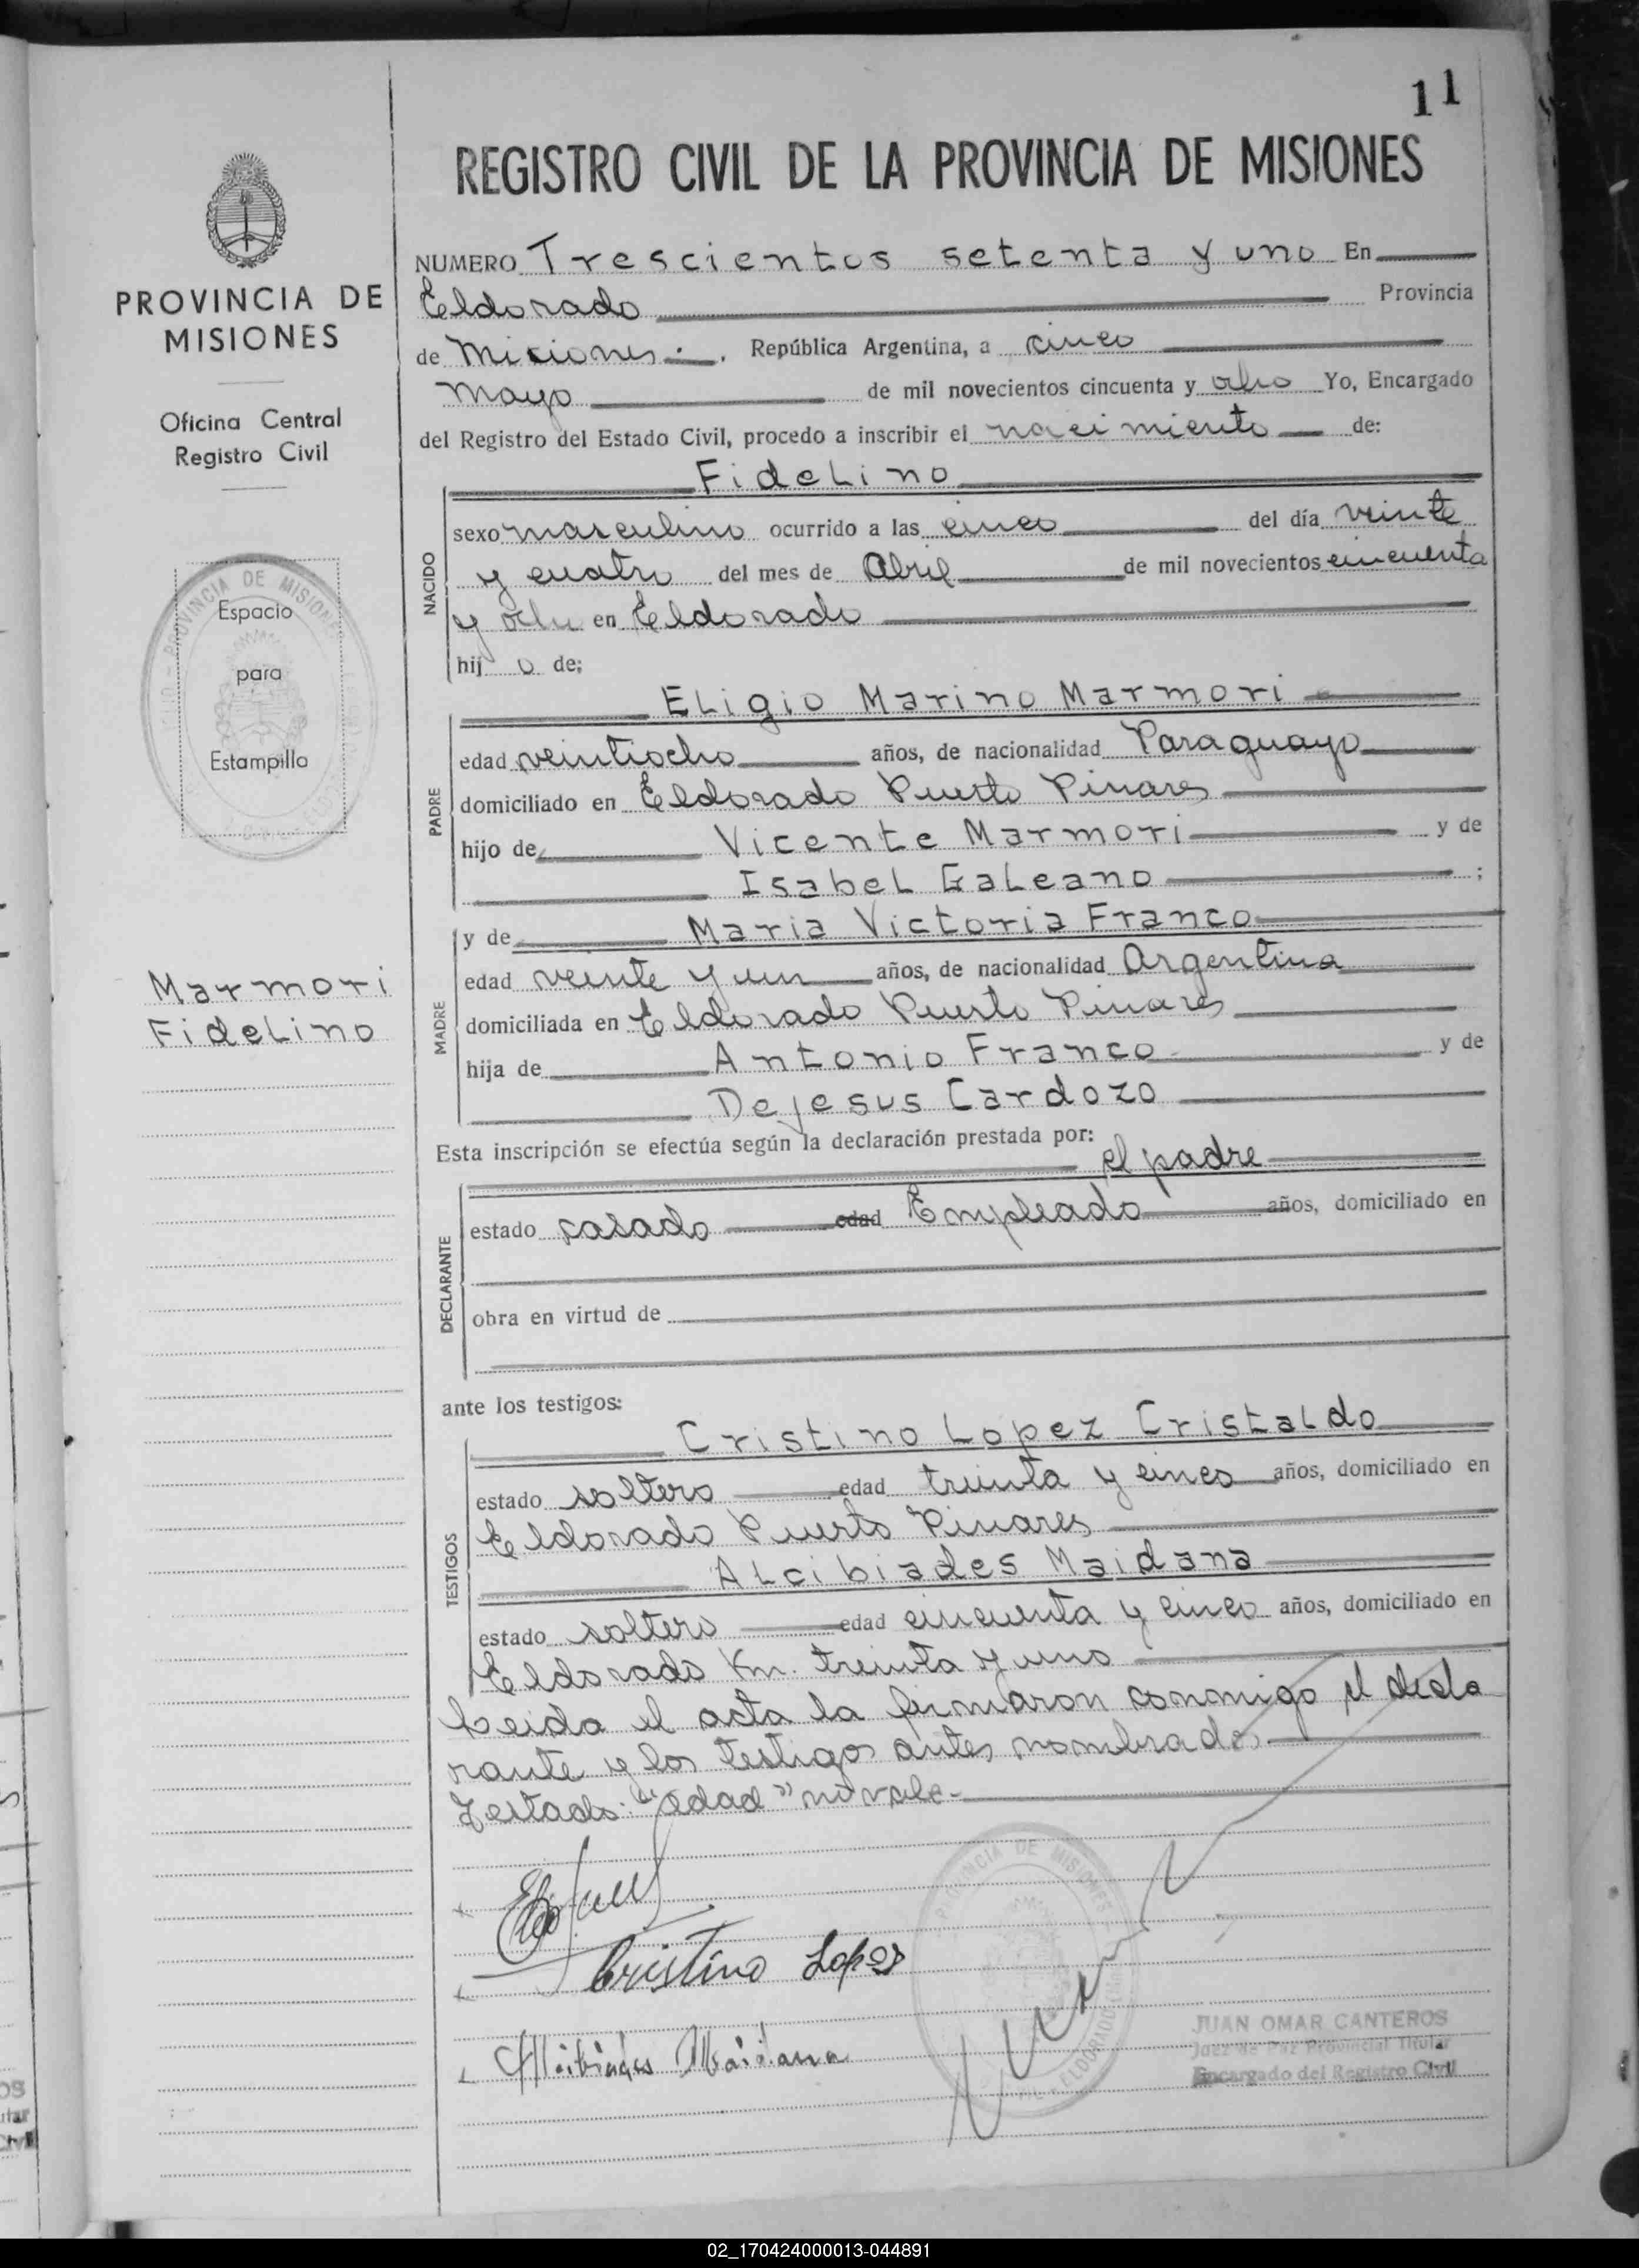 11
REGISTRO CIVIL DE LA PROVINCIA DE MISIONES
PROVINCIA DE
MISIONES
Oficina Central
Registro Civil
Espacio
para
Estampilla
Marmori
Fidelino
NUMERO Trescientos setenta y uno En
Eldorado Provincia
de Misiones. República Argentina, a cinco
Mayo de mil novecientos cincuenta y ocho Yo, Encargado
del Registro del Estado Civil, procedo a inscribir el nacimiento de:
Fidelino
NACIDO
sexo masculino ocurrido a las cinco del día veinte
y cuatro del mes de Abril de mil novecientos cincuenta
y ocho en Eldorado
hij o de;
Eligio Marino Marmori
PADRE
edad veintiocho años, de nacionalidad Paraguayo
domiciliado en Eldorado Puerto Pinares
hijo de Vicente Marmori y de
Isabel Galeano ;
MADRE
y de Maria Victoria Franco
edad veinte y un años, de nacionalidad Argentina
domiciliada en Eldorado Puerto Pinares
hija de Antonio Franco y de
Dejesus Cardozo
Esta inscripción se efectúa según la declaración prestada por:
el padre
DECLARANTE
estado casado edad Empleado años, domiciliado en
obra en virtud de
ante los testigos:
Cristino Lopez Cristaldo
TESTIGOS
estado soltero edad treinta y cinco años, domiciliado en
Eldorado Puerto Pinares
Alcibiades Maidana
estado soltero edad cincuenta y cinco años, domiciliado en
Eldorado Km. treinta y uno
Leida el acta la firmaron conmigo el decla
rante y los testigos antes nombrados
Testado: "edad" no vale.-
Cristino Lopez
Alcibiades Maidana
PROVINCIA DE MISIONES
ELDORADO
JUAN OMAR CANTEROS
Juez de Paz Provincial Titular
Encargado del Registro Civil
02_170424000013-044891